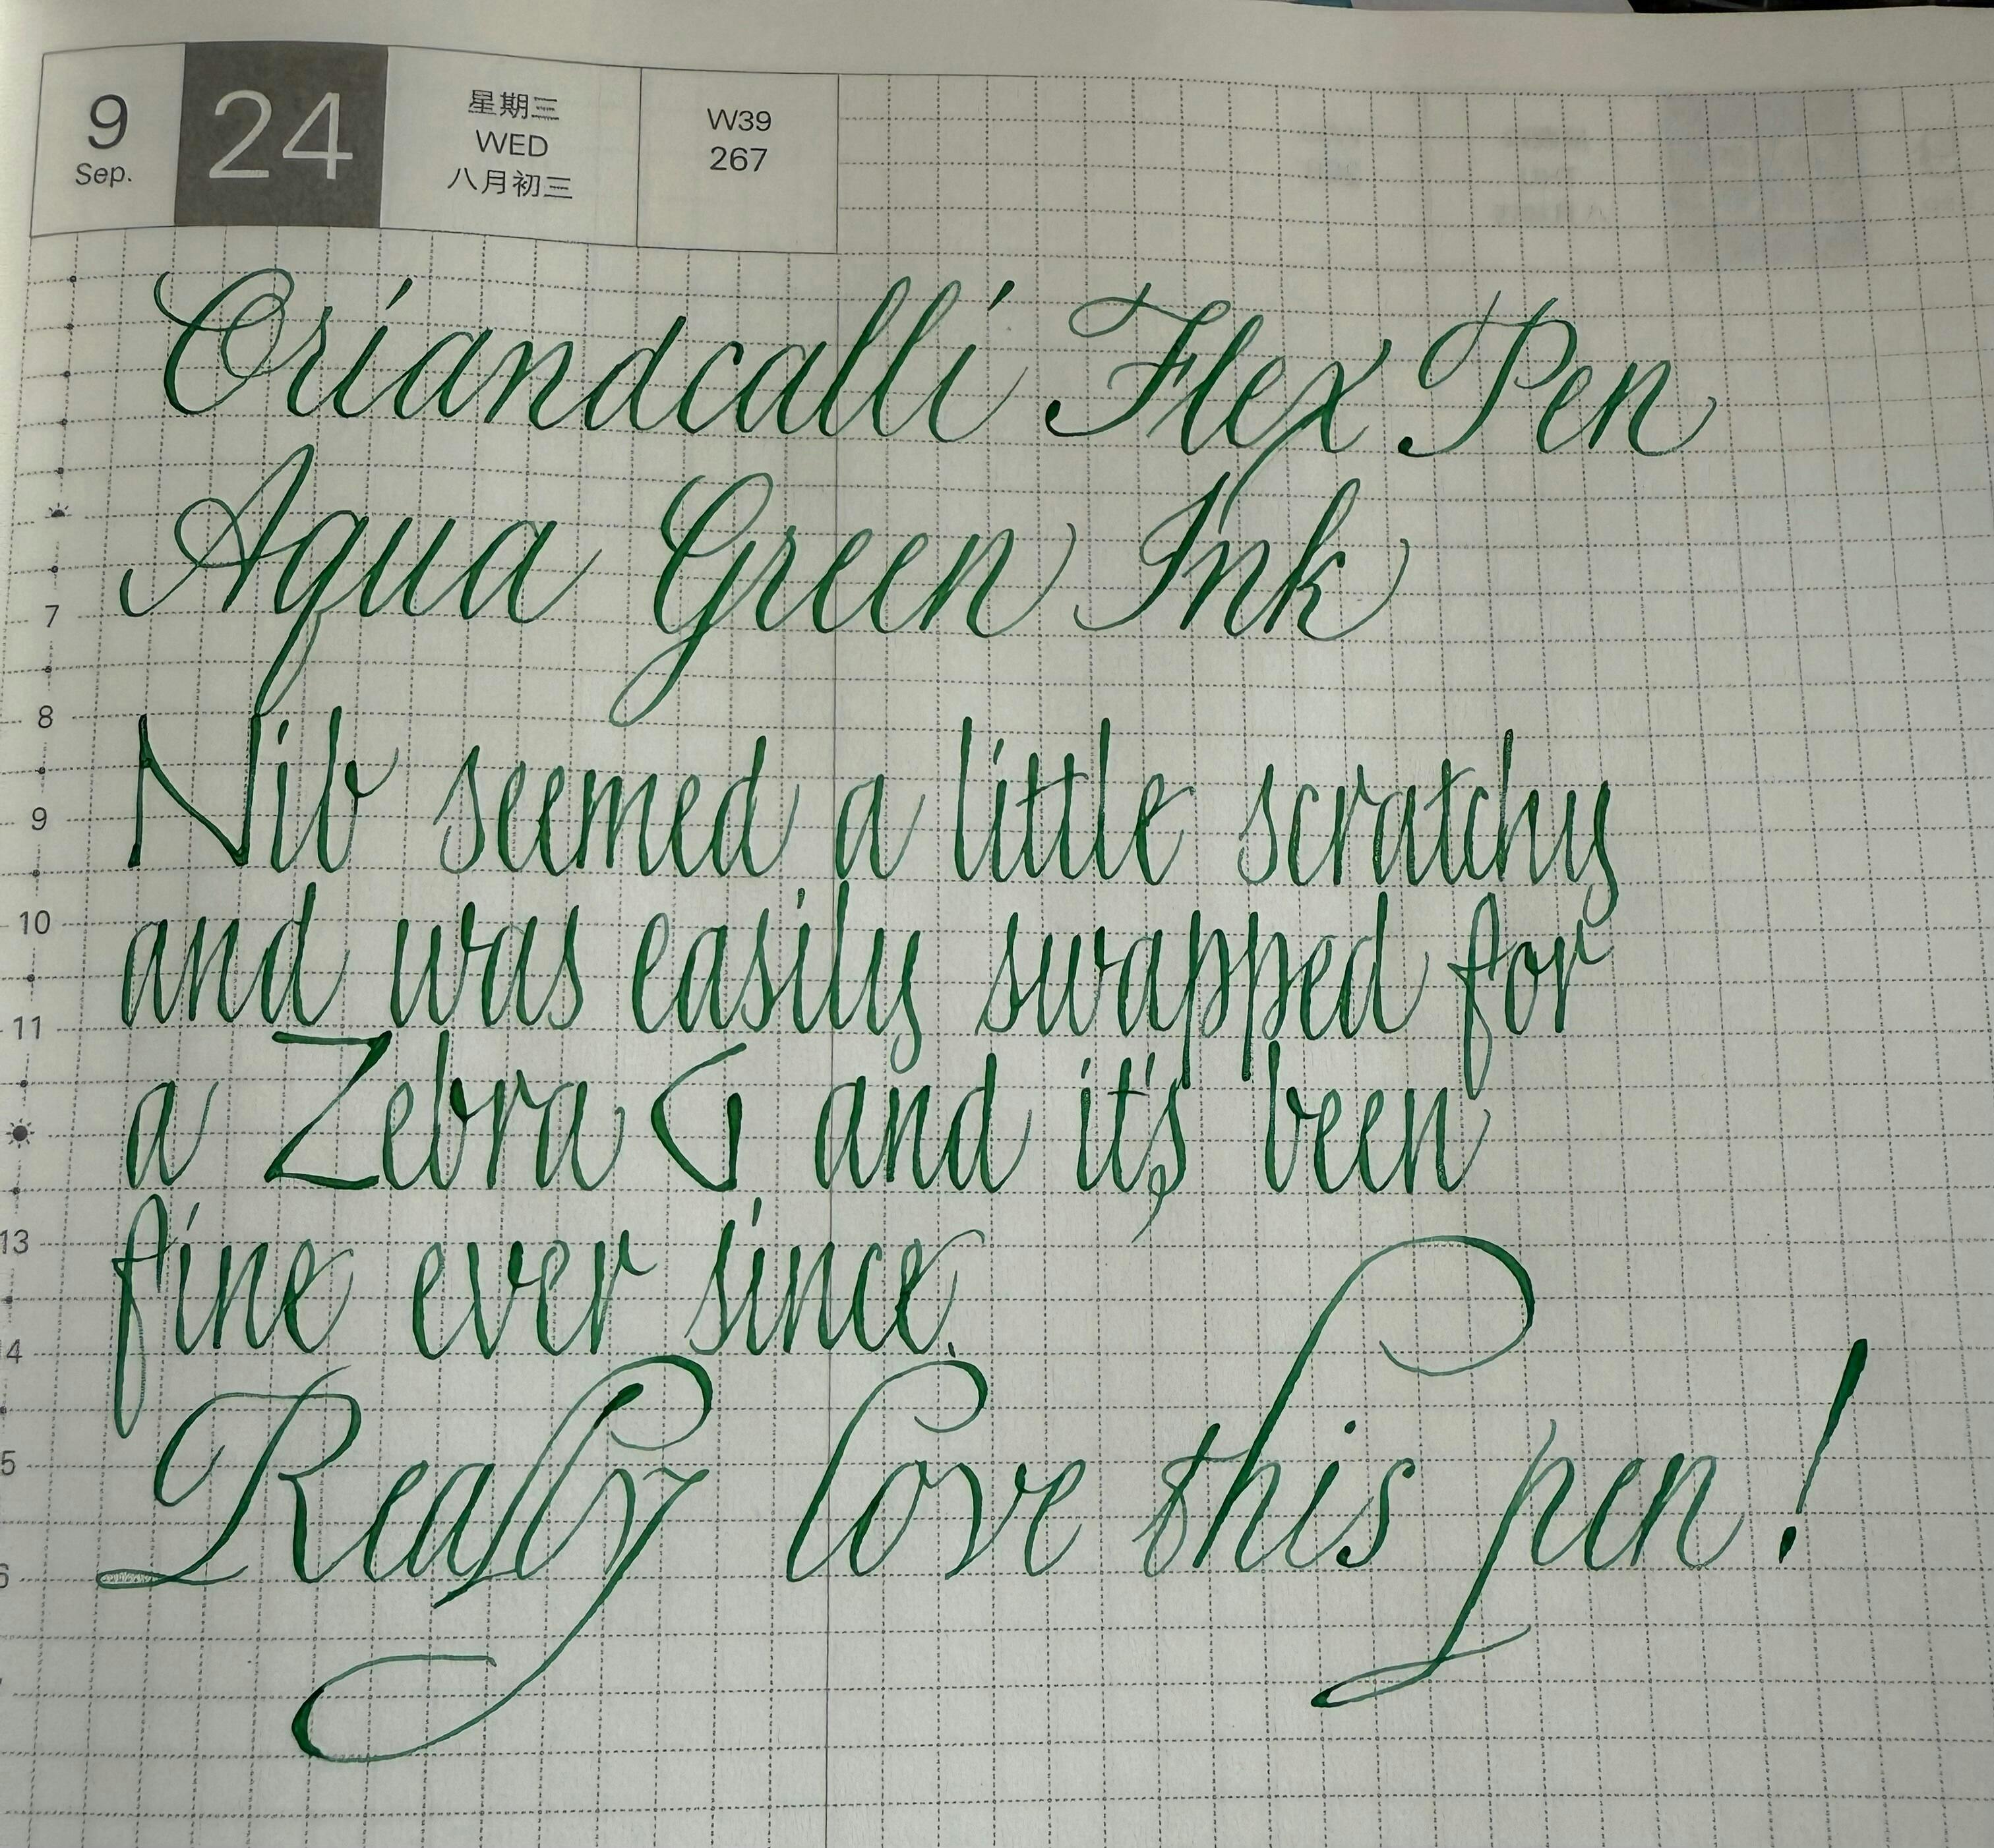 9 24 星期三 W39
Sep. WED 267
八月初三
Oriandcalli Flex Pen
Aqua Green Ink
7
8
Nib seemed a little scratchy
9
and was easily swapped for
10
11
a Zebra G and it's been
fine ever since.
13
14
Really love this pen!